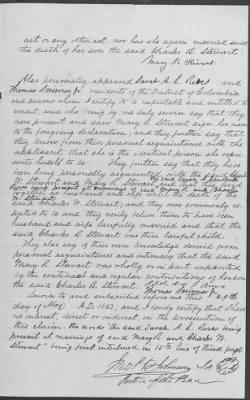 act or any other act, nor has she again married since
the death of her son the said Charles B. Stewart.
Mary R. Stewart
Also personally appeared Sarah A. L. Ricks and
Thomas Scrivener Jr residents of the District of Columbia
are persons whom I certify to be respectable and entitled to
credit, and who being by me duly sworn say that they
were present and saw Mary R. Stewart sign her name
to the foregoing declaration; and they further say that
they know from their personal acquaintance with the
applicant that she is the identical person she repre-
sents herself to be. They further say that they have
been long personally acquainted with the said Charles
W. Stewart and Mary R. Stewart and that
W. Stewart
said Charles W. Stewart; and they were commonly re-
puted to be and they verily believe them to have been
husband and wife lawfully married and that the
said Charles B. Stewart was their lawful child.
They also say of their own knowledge derived from
personal acquaintance and intimacy that the said
Mary R. Stewart was wholly or in part supported
by the continued and regular contributions of her son
the said Charles B. Stewart. Sarah A. L. Ricks
Thomas Scrivener Jr
Sworn to and subscribed before me this
day of May A.D. 1863 and I hereby certify that I have
no interest, direct or indirect in the prosecution of
this claim. the words "the said Sarah A. L. Ricks being
present at marriage of said Mary R and Charles W.
Stewart" being first interlined in 15th line of third page
Justice of the Peace